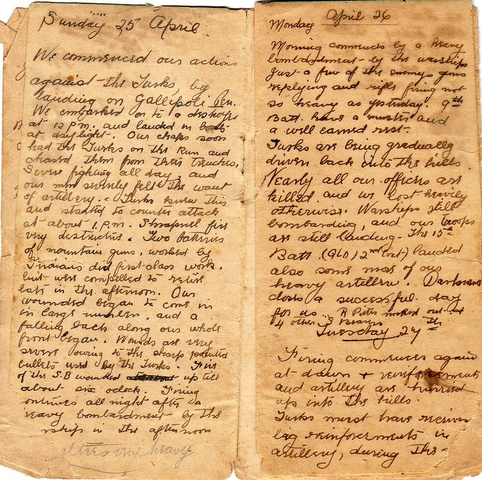 Sunday 25 April.
We commenced our actions
against the Turks, by
landing on Gallipoli Pen.
We embarked on to a
at 12 P.M. and landed in
at daylight. Our chaps soon
had the Turks on the Run and
chased them from their trenches,
Severe fighting all day, and
our men severely felt the want
of artillery. Turks knew this
and started to counter attack
at about 1. P.M. Shrapnel fire
very destructive. Two batteries
of mountain guns, worked by
Indians did first class work,
but were compelled to retire
late in the afternoon. Our
wounded began to come in
in large numbers, and a
falling back along our whole
front began. Wounds are very
severe owing to the sharp pointed
bullets used by the Turks.
of the S.B wounded up till
about six oclock. Firing
continues all night after a
heavy bombardment by the
warships in the afternoon
Monday April 26
Morning commences by a heavy
bombardment by the warships
Just a few of the enemys guns
replying and rifle firing not
so heavy as yesterday. 9th
Batt. have a muster and
a well earned rest.
Turks are being gradually
driven back into the hills
Nearly all our officers are
killed and we lost heavily
otherwise. Warships still
bombarding, and our troops
are still landing. The 15th
Batt (Qld 2nd Cont) landed
also some more of our
heavy artillery. Darkness
closes a successful day
for us. R Pitts out
4 other Bearers
Tuesday 27th
Firing commences again
at dawn & reinforcements
and artillery are hurried
up into the hills.
Turks must have received
big reinforcements in
artillery, during the